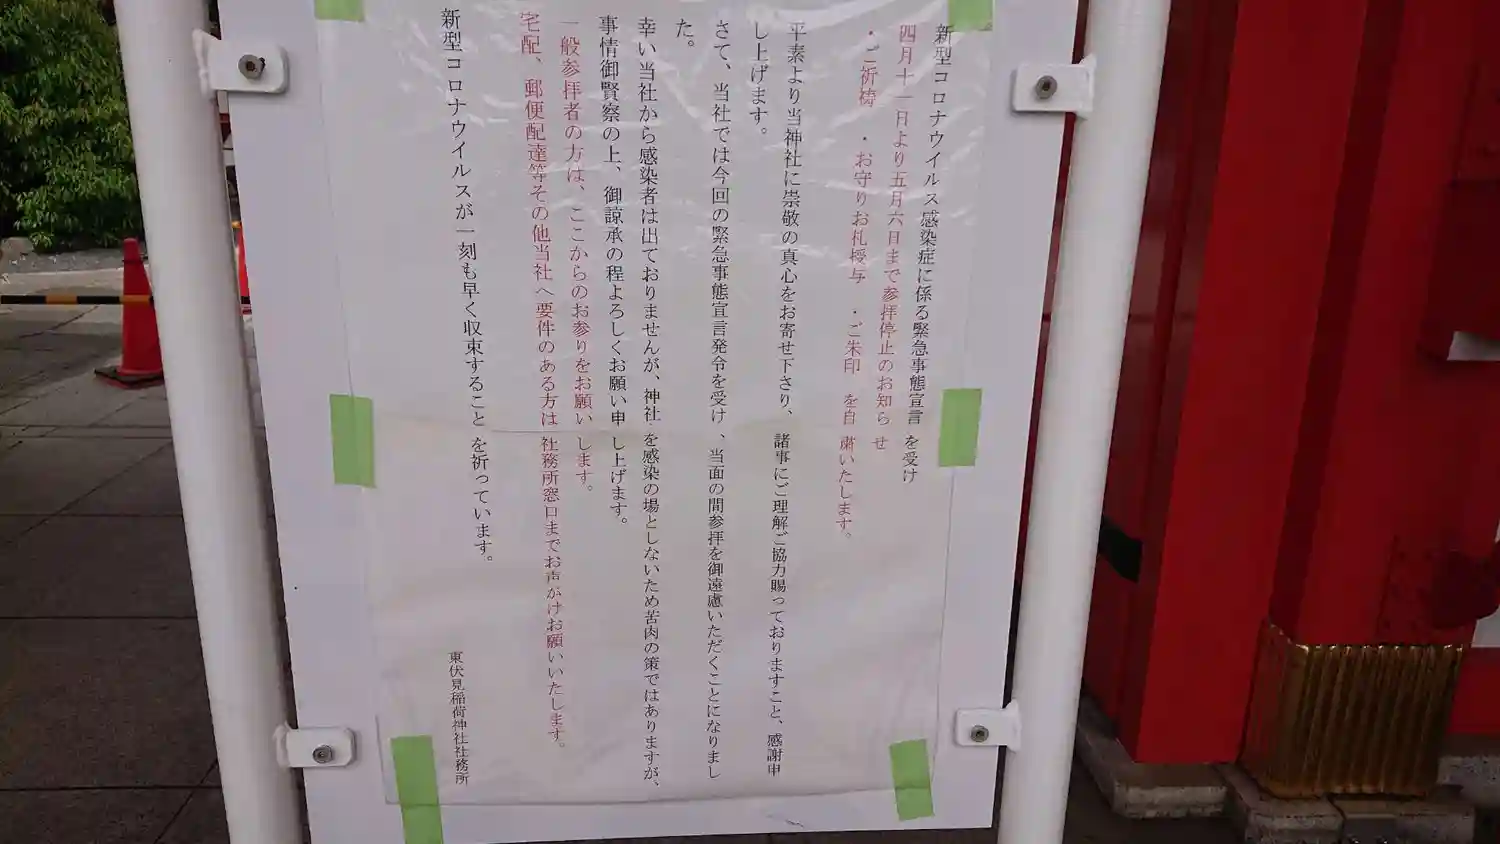 新型コロナウイルス感染症に係る緊急事態宣言を受け
四月十一日より五月六日まで参拝停止のお知らせ
・ご祈祷　・お守りお札授与　・ご朱印　を自粛いたします。
平素より当神社に崇敬の真心をお寄せ下さり、諸事にご理解ご協力賜っておりますこと、感謝申
し上げます。
さて、当社では今回の緊急事態宣言発令を受け、当面の間参拝を御遠慮いただくことになりまし
た。
幸い当社から感染者は出ておりませんが、神社を感染の場としないため苦肉の策ではありますが、
事情御賢察の上、御諒承の程よろしくお願い申し上げます。
一般参拝者の方は、ここからのお参りをお願いします。
宅配、郵便配達等その他当社へ要件のある方は社務所窓口までお声がけお願いいたします。
新型コロナウイルスが一刻も早く収束することを祈っています。
東伏見稲荷神社社務所